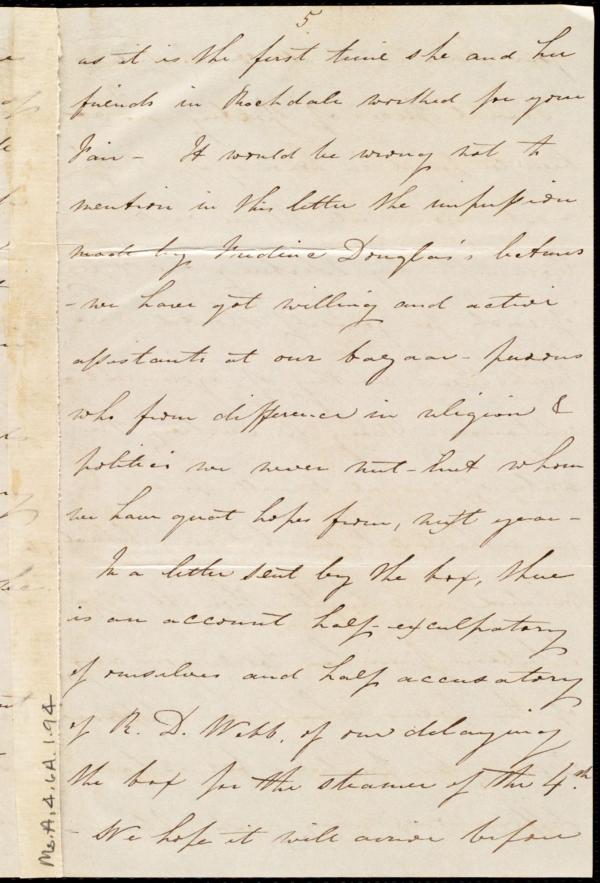 5
as it is the first time she and her
friends in Rochdale worked for your
Fair - It would be wrong not to
mention in this letter the impression
made by Frederic Douglas's lectures
- we have got willing and active
assistants at our bazaar - persons
who from difference in religion &
politics we never met - but whom
we have great hopes from, next year -
In a letter sent by the box, there
is an account half-exculpatory
of ourselves and half accusatory
of R. D. Webb, of our delaying
the box for the steamer of the 4th.
- We hope it will arrive before
Ms.A.4.6A.1.94